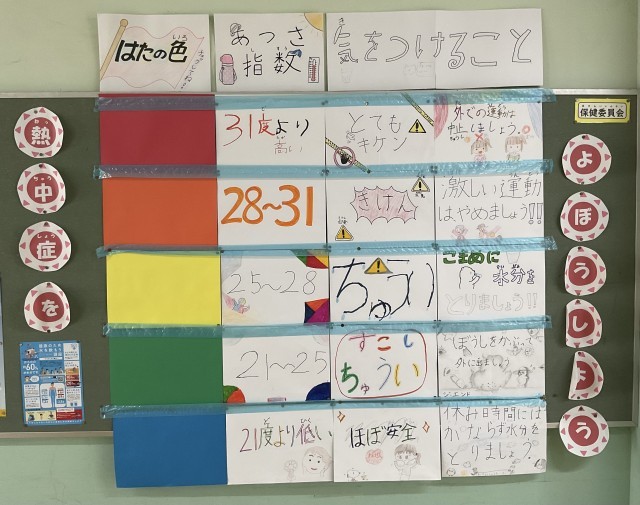 はたの色
あつさ
指数
気をつけること
保健委員会
熱
中
症
を
よ
ぼ
う
し
よ
う
31度より
高い
とても
キケン
外での運動は
中止しましょう。
28~31
きけん
激しい運動
はやめましょう!!
25~28
ちゅうい
こまめに
水分を
とりましょう!!
21~25
すこし
ちゅうい
ぼうしをかぶって
外に出ましょう
21度より低い
ほぼ安全
休み時間には
かならず水分を
とりましょう。